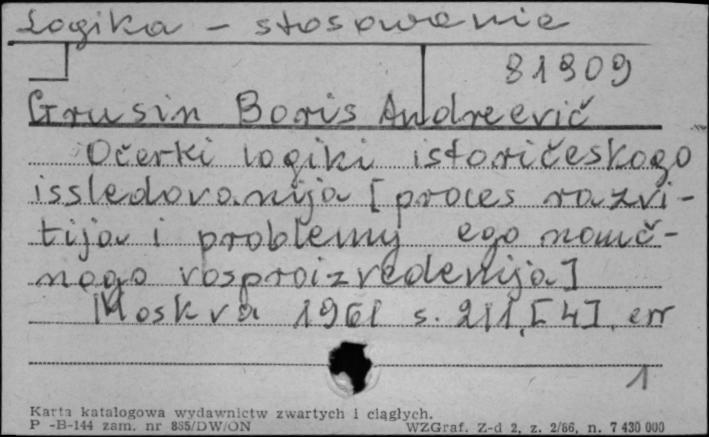 Logika - stosowanie
81909
Grusin Boris Andreevič
Očerki logiki istoričeskogo
issledovanija [proces razvi-
tija i problemy ego nauč-
nogo vosproizvedenija]
Moskva 1961 s. 211, [4], err
1
Karta katalogowa wydawnictw zwartych i ciągłych.
P -B-144 zam. nr 885/DW/ON WZGraf. Z-d 2, z. 2/66, n. 7 430 000